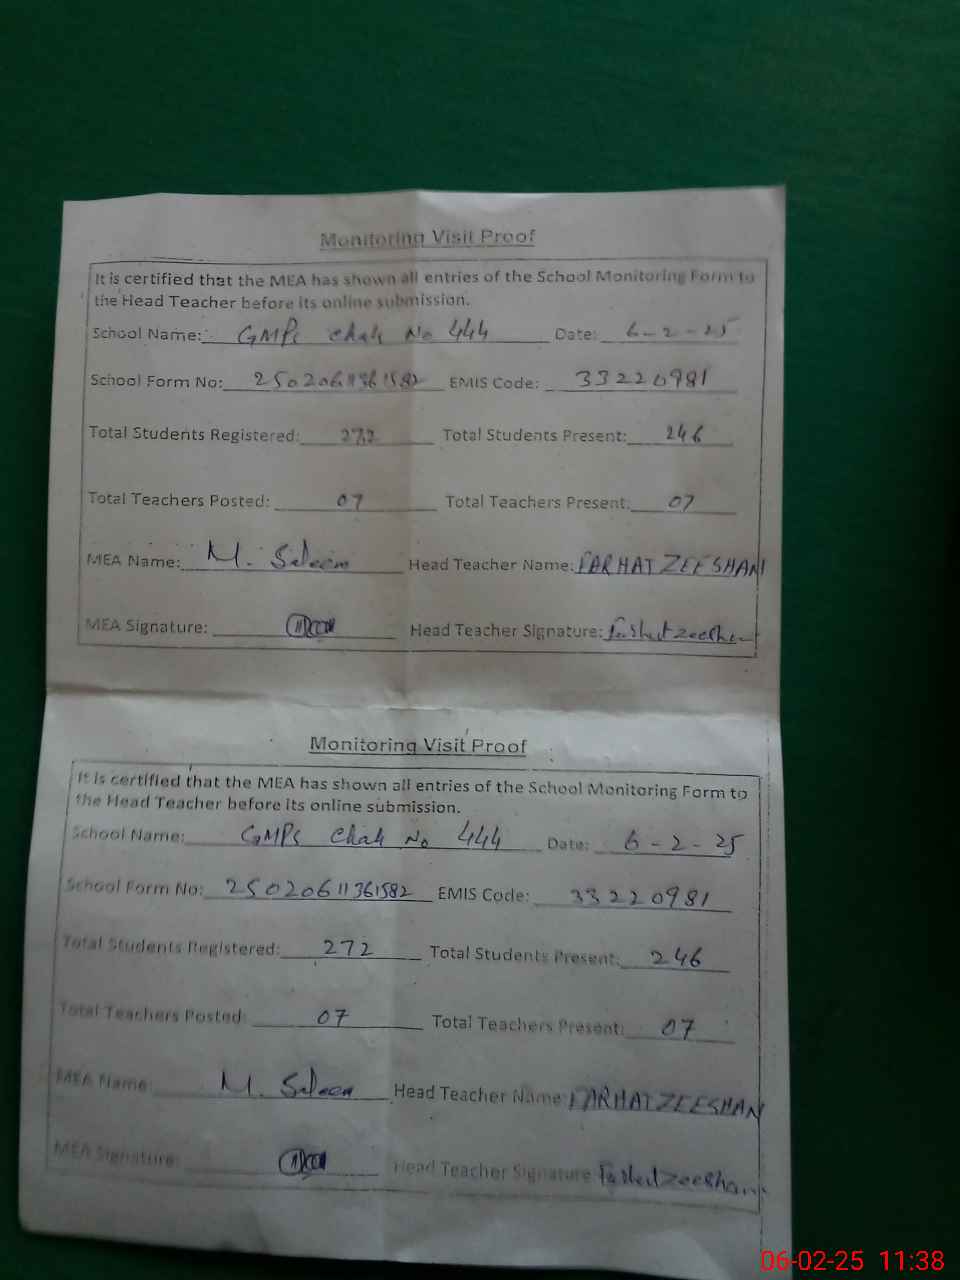 Monitoring Visit Proof
It is certified that the MEA has shown all entries of the School Monitoring Form to
the Head Teacher before its online submission.
School Name: GMPS Chak No 444 Date: 6-2-25
School Form No: 25020611361582 EMIS Code: 33220981
Total Students Registered: 272 Total Students Present: 246
Total Teachers Posted: 07 Total Teachers Present: 07
MEA Name: M. Saleem Head Teacher Name: FARHAT ZEESHAN
MEA Signature: Head Teacher Signature: Farhat zeeshan
Monitoring Visit Proof
It is certified that the MEA has shown all entries of the School Monitoring Form to
the Head Teacher before its online submission.
School Name: GMPS Chak No 444 Date: 6-2-25
School Form No: 25020611361582 EMIS Code: 33220981
Total Students Registered: 272 Total Students Present: 246
Total Teachers Posted: 07 Total Teachers Present: 07
MEA Name: M. Saleem Head Teacher Name: FARHAT ZEESHAN
MEA Signature: Head Teacher Signature: Farhat zeeshan
06-02-25 11:38